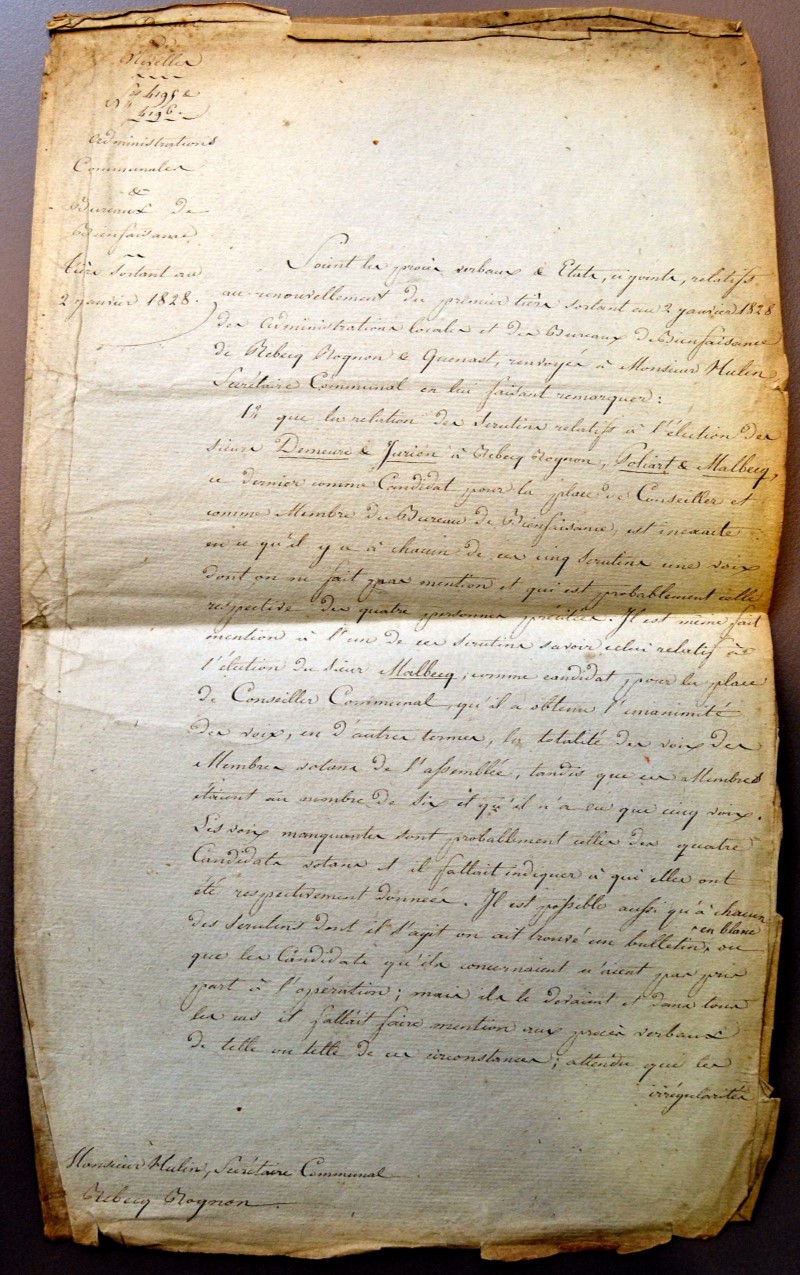 Nivelles
Nos 4195 &
4196.
Administrations
Communales
&
Bureaux de
Bienfaisance
tiers sortant au
2 janvier 1828.
Soient les procès verbaux & Etats, ci joints, relatifs
au renouvellement du premier tiers sortant au 2 janvier 1828
des Administrations locales et des Bureaux de Bienfaisance
de Rebecq Rognon & Quenast, renvoyés à Monsieur Hulin
Secrétaire Communal en lui faisant remarquer :
1º que la relation des scrutins relatifs à l'élection des
sieurs Demeure & Jurion à Rebecq Rognon, Soliart & Malbecq,
ce dernier comme Candidat pour la place de Conseiller et
comme Membre du Bureau de Bienfaisance, est inexacte
en ce qu'il y a à chacun de ces cinq scrutins une voix
dont on ne fait pas mention et qui est probablement celle
respective des quatre personnes précitées. Il est même fait
mention à l'un de ces scrutins savoir celui relatif à
l'élection du sieur Malbecq, comme candidat pour la place
de Conseiller Communal, qu'il a obtenu l'unanimité
des voix, en d'autres termes, la totalité des voix des
Membres votans de l'assemblée, tandis que ces Membres
étaient au nombre de six et qu'il n'a eu que cinq voix.
Les voix manquantes sont probablement celles des quatre
Candidats votans et il fallait indiquer à qui elles ont
été respectivement données. Il est possible aussi qu'à chacun
des scrutins dont il s'agit on ait trouvé un bulletin en blanc, ou
que les Candidats qu'ils concernaient n'aient pas pris
part à l'opération ; mais ils le devaient et dans tous
les cas il fallait faire mention aux procès verbaux
de telle ou telle de ces circonstances ; attendu que les
irrégularités
Monsieur Hulin, Secrétaire Communal
Rebecq Rognon.